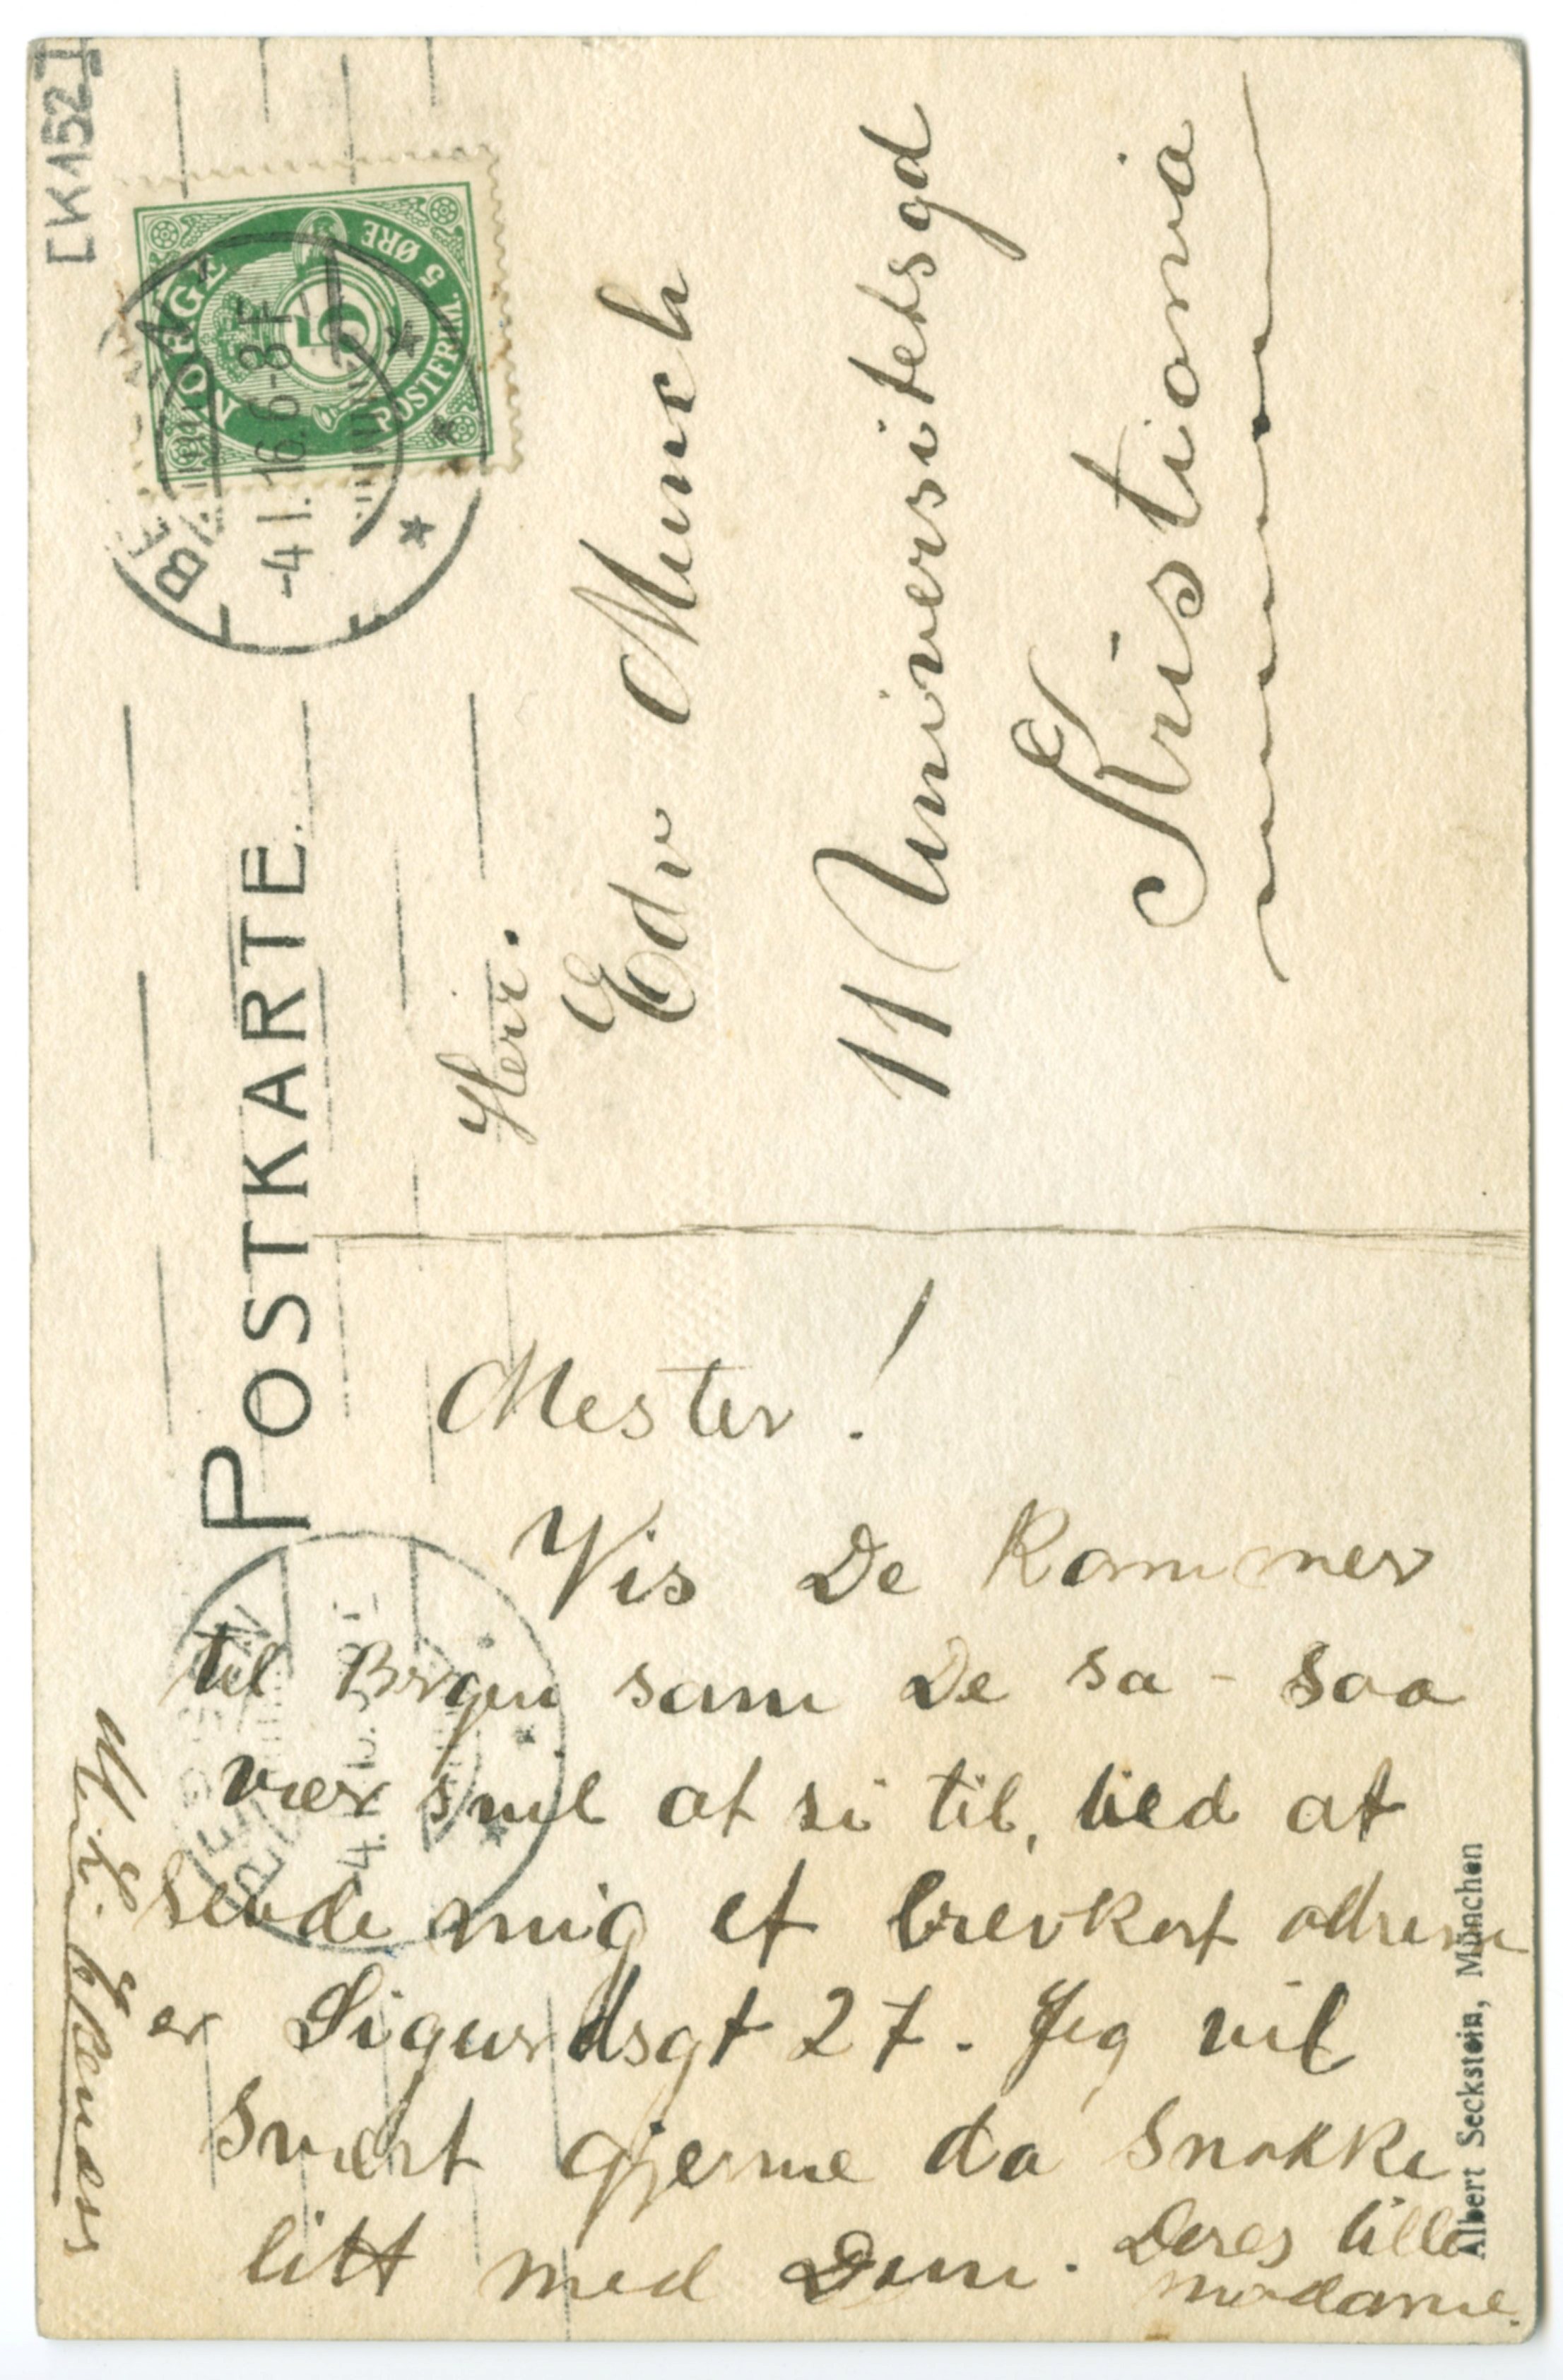 [K152]
NORGE
5
POSTFRIM. 5 ØRE
BERGEN
-4 I. 16. 6-8 F
POSTKARTE.
Herr.
Edv Munch
11 Universitetsgd
Kristiania
Mester!
Vis De kommer
til Brgen som De sa - saa
vær snil at si til, ved at
sende mig et brevkort adresse
er Sigurdsgt 27. Jeg vil
svært gjerne da snakke
litt med Dem. Deres lille
madame.
Albert Seckstein, München